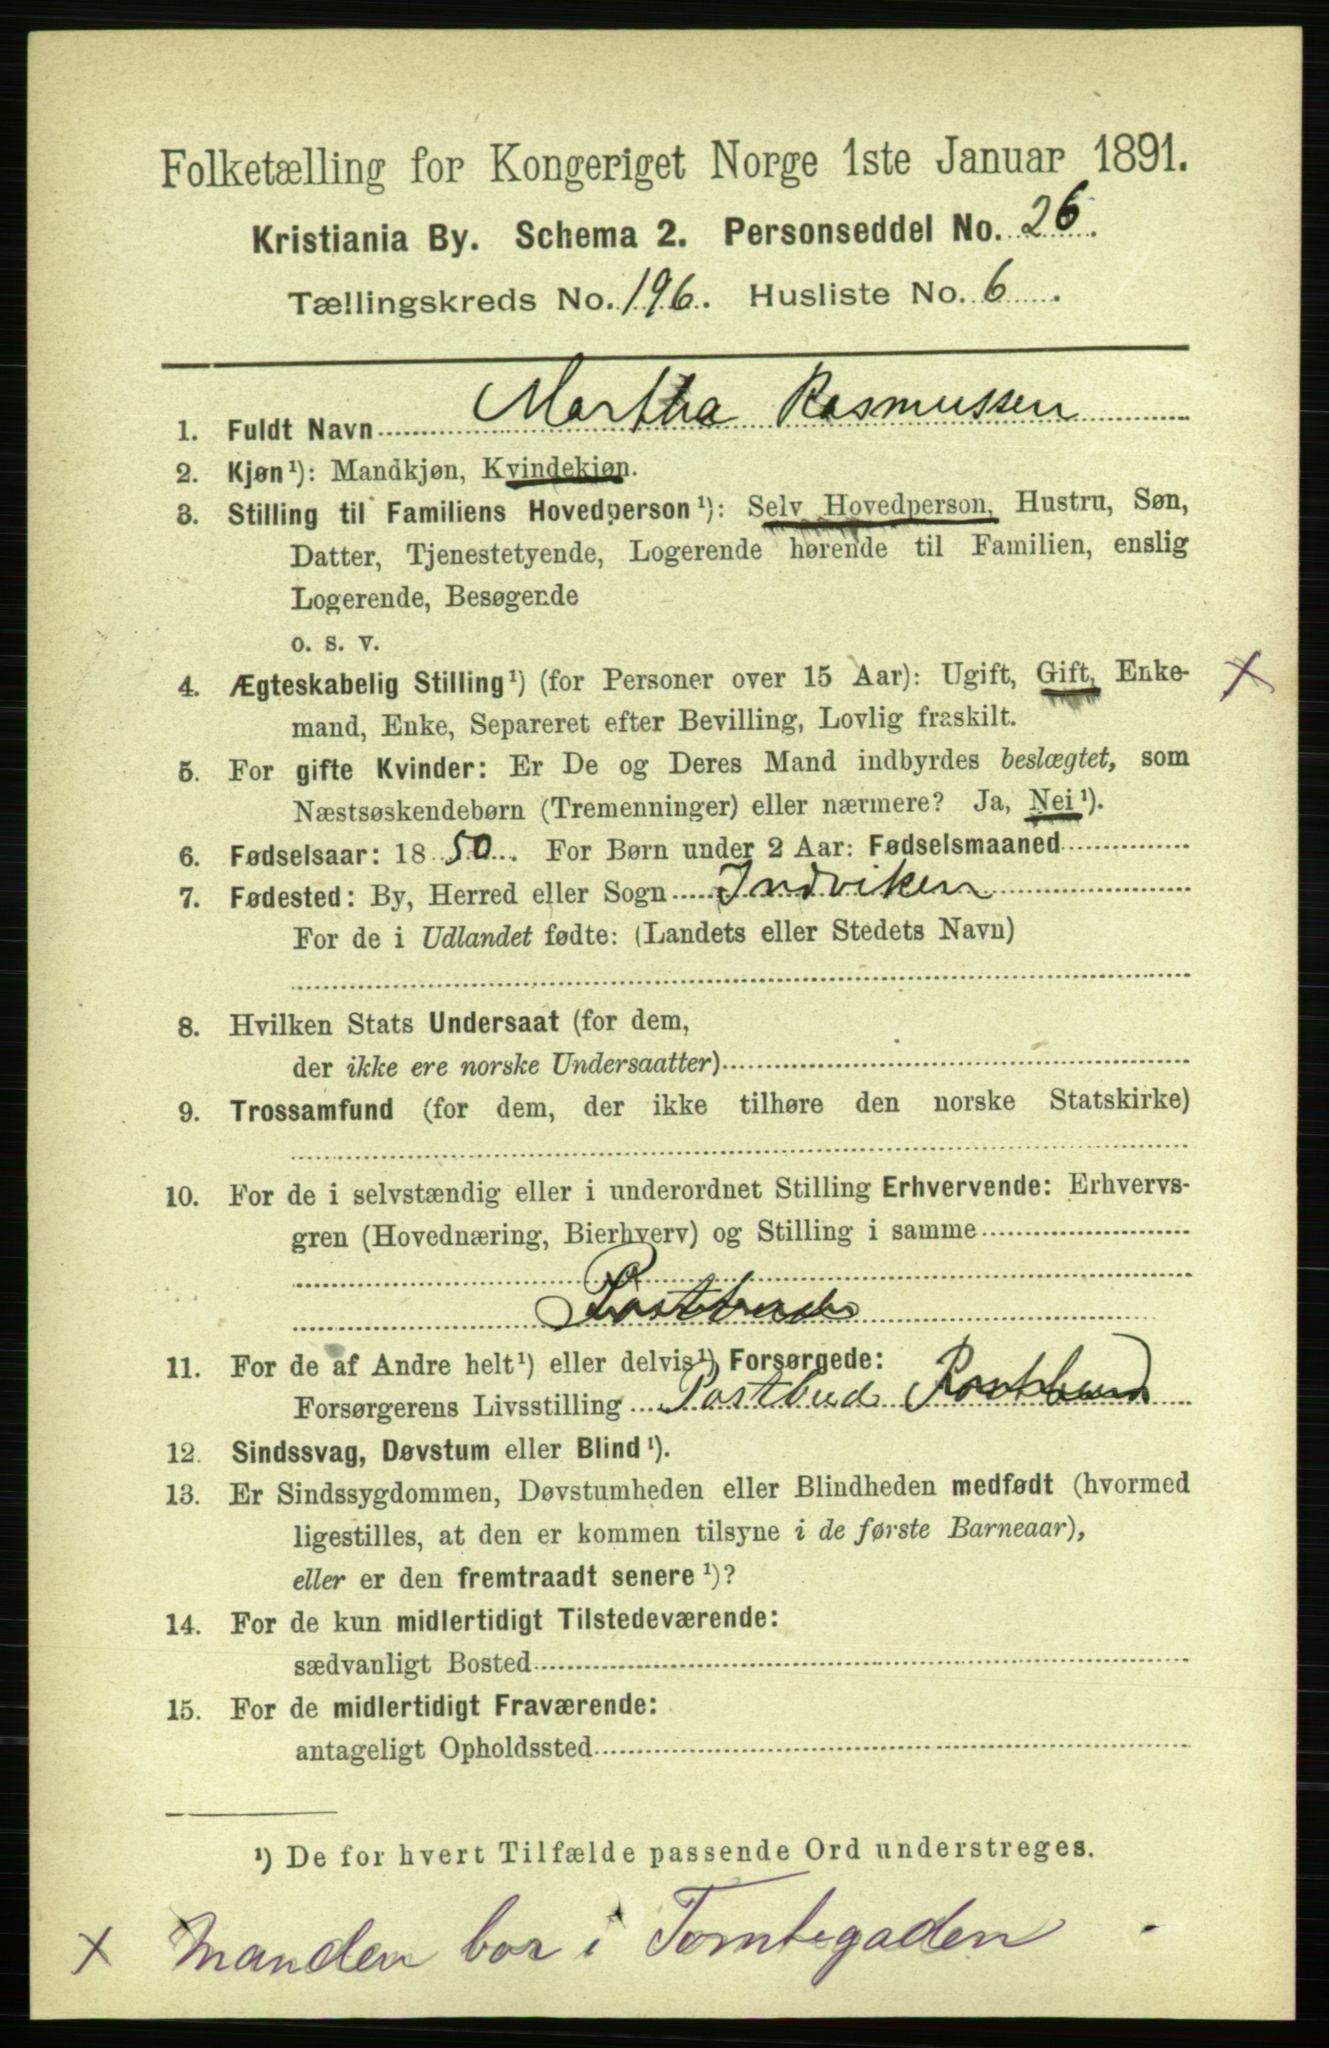 Folketælling for Kongeriget Norge 1ste Januar 1891.
Kristiania By. Schema 2. Personseddel No. 26.
Tællingskreds No. 196. Husliste No. 6.
1. Fuldt Navn Martha Rasmussen
2. Kjøn¹): Mandkjøn, Kvindekjøn.
3. Stilling til Familiens Hovedperson¹): Selv Hovedperson, Hustru, Søn,
Datter, Tjenestetyende, Logerende hørende til Familien, enslig
Logerende, Besøgende
o. s. v.
4. Ægteskabelig Stilling¹) (for Personer over 15 Aar): Ugift, Gift, Enke- x
mand, Enke, Separeret efter Bevilling, Lovlig fraskilt.
5. For gifte Kvinder: Er De og Deres Mand indbyrdes beslægtet, som
Næstsøskendebørn (Tremenninger) eller nærmere? Ja, Nei¹).
6. Fødselsaar: 1850. For Børn under 2 Aar: Fødselsmaaned
7. Fødested: By, Herred eller Sogn Indviken
For de i Udlandet fødte: (Landets eller Stedets Navn)
8. Hvilken Stats Undersaat (for dem,
der ikke ere norske Undersaatter)
9. Trossamfund (for dem, der ikke tilhøre den norske Statskirke)
10. For de i selvstændig eller i underordnet Stilling Erhvervende: Erhvervs-
gren (Hovednæring, Bierhverv) og Stilling i samme
Postbud
11. For de af Andre helt¹) eller delvis¹) Forsørgede:
Forsørgerens Livsstilling Postbud Postbud
12. Sindssvag, Døvstum eller Blind¹).
13. Er Sindssygdommen, Døvstumheden eller Blindheden medfødt (hvormed
ligestilles, at den er kommen tilsyne i de første Barneaar),
eller er den fremtraadt senere¹)?
14. For de kun midlertidigt Tilstedeværende:
sædvanligt Bosted
15. For de midlertidigt Fraværende:
antageligt Opholdssted
¹) De for hvert Tilfælde passende Ord understreges.
x Manden bor i Tomtegaden